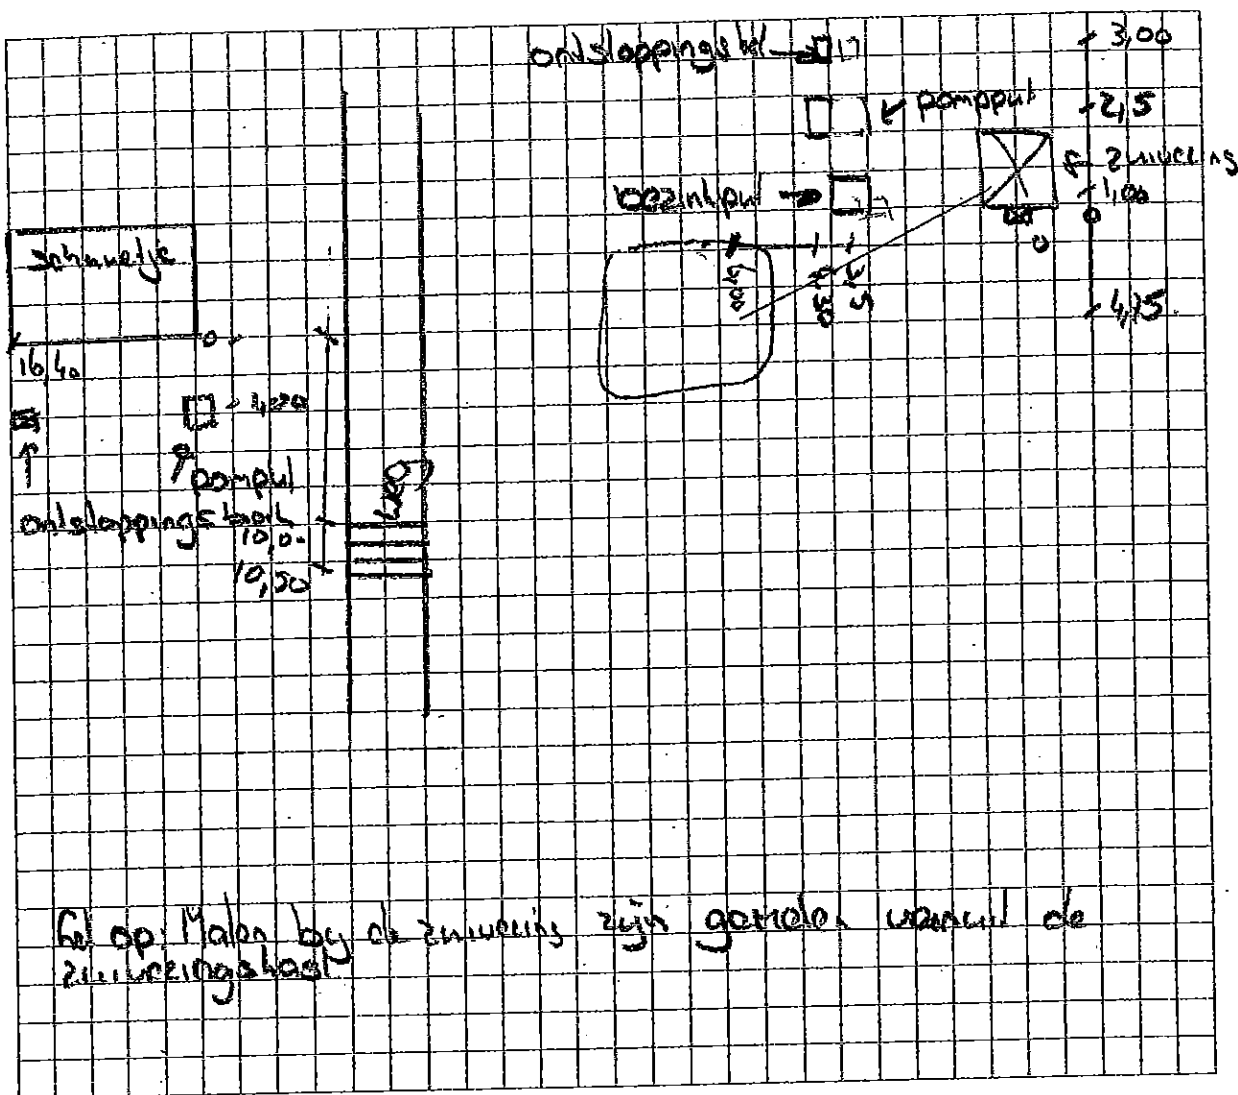 ontstoppingsbel
3,00
2,5
pompput
zuivering
1,00
bezinkput
0
0
6,00
4,30
3,5
4,75
schuurtje
0
16,40
1,00
pompul
ontstoppingsbock
weg
10,00
10,50
Let op: Maten by de zuivering zijn gemeten vanuit de
zuiveringskast